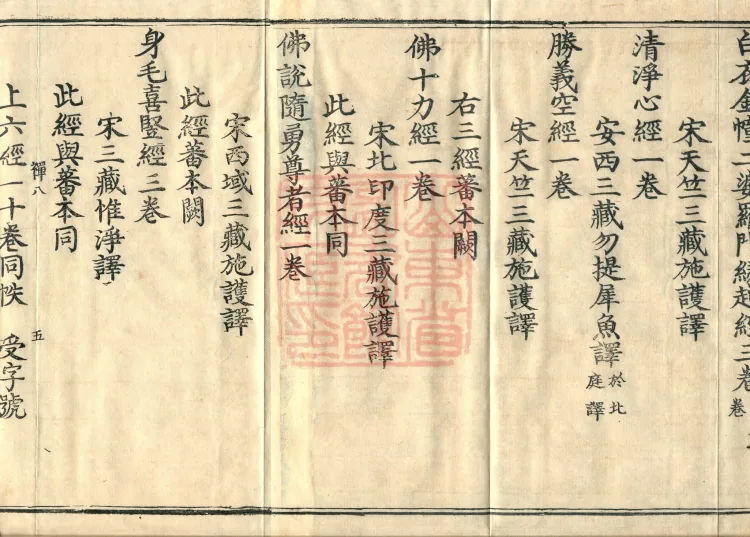 白衣金幢二婆羅門緣起經三卷
宋天竺三藏施護譯
清淨心經一卷
安西三藏勿提犀魚譯 於北庭譯
勝義空經一卷
宋天竺三藏施護譯
右三經蕃本闕
佛十力經一卷
宋北印度三藏施護譯
此經與蕃本同
佛說隨勇尊者經一卷
宋西域三藏施護譯
此經蕃本闕
身毛喜竪經三卷
宋三藏惟淨譯
此經與蕃本同
禪八 五
上六經一十卷同帙 受字號